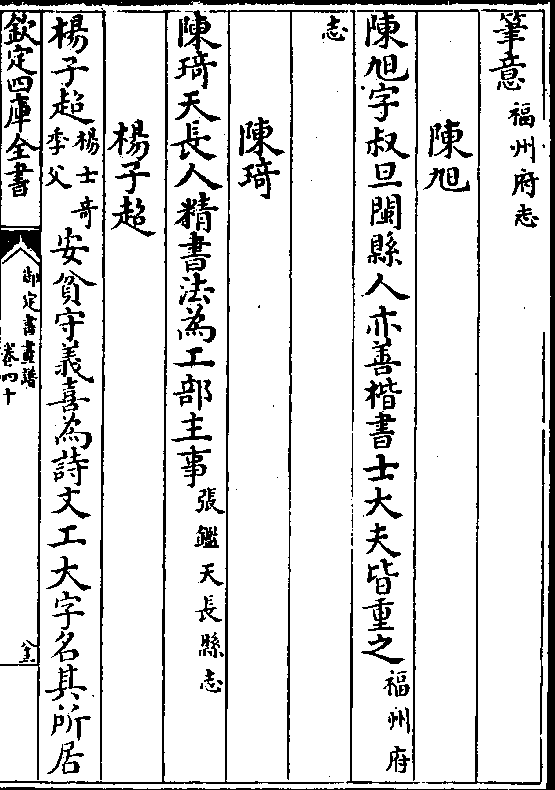 筆意福州府志
陳旭
陳旭字叔旦閩縣人亦善楷書士大夫皆重之福州府
志
陳琦
陳琦天長人精書法為工部主事張鑑天長縣志
楊子超
楊子超楊士奇季父安貧守義喜為詩文工大字名其所居
欽定四庫全書
御定書畫譜
卷四十